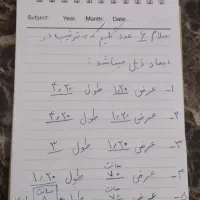 Subject: Year: Month: Date:
سلام ۷ عدد گلیم که به ترتیب در
ابعاد ذیل میباشد :
۱- عرض ۱/۲۰ طول ۴/۲۰
۲- عرض ۱/۲۰ طول ۴/۲۰
۳- عرض ۱/۲۰ طول ۳
۴- عرض ۷۰ سانت طول ۱/۲۰
عرض ۷۰ سانت